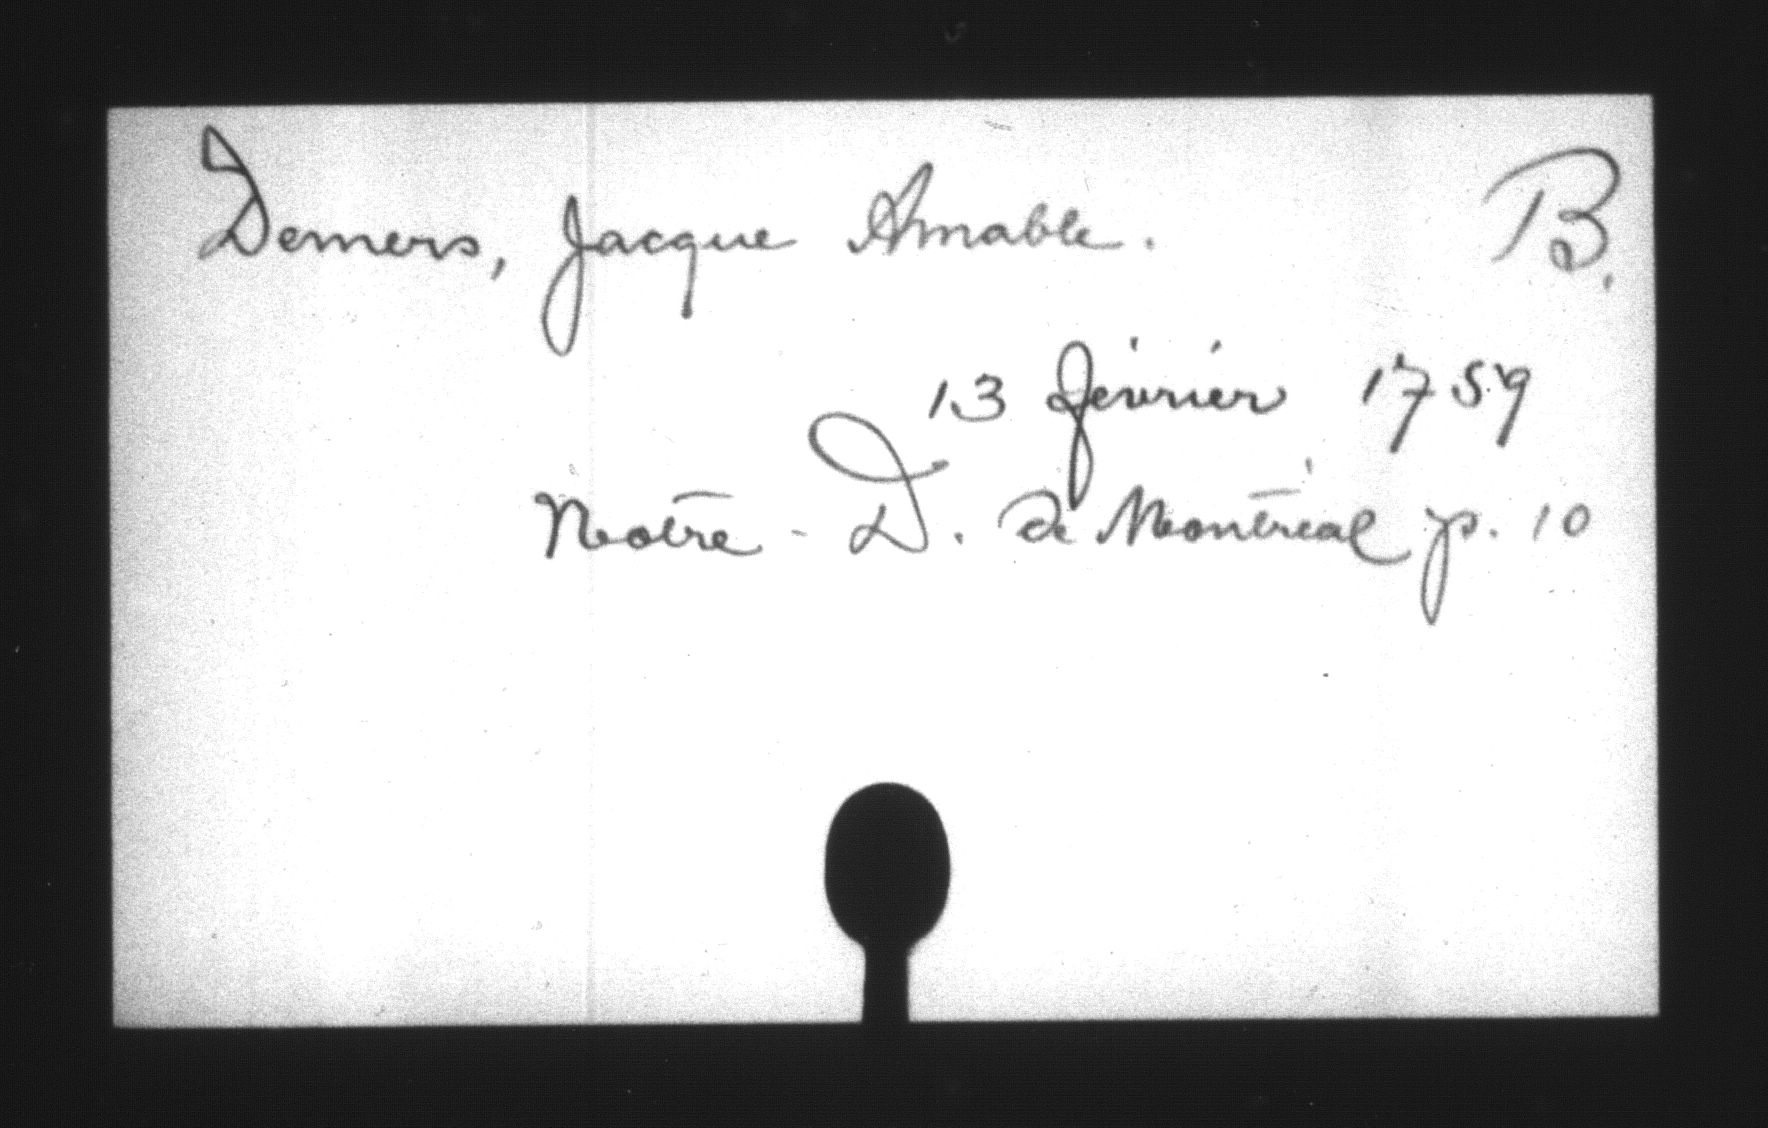 Demers, Jacque Amable. B.
13 février 1759
Notre-D. de Montréal p. 10